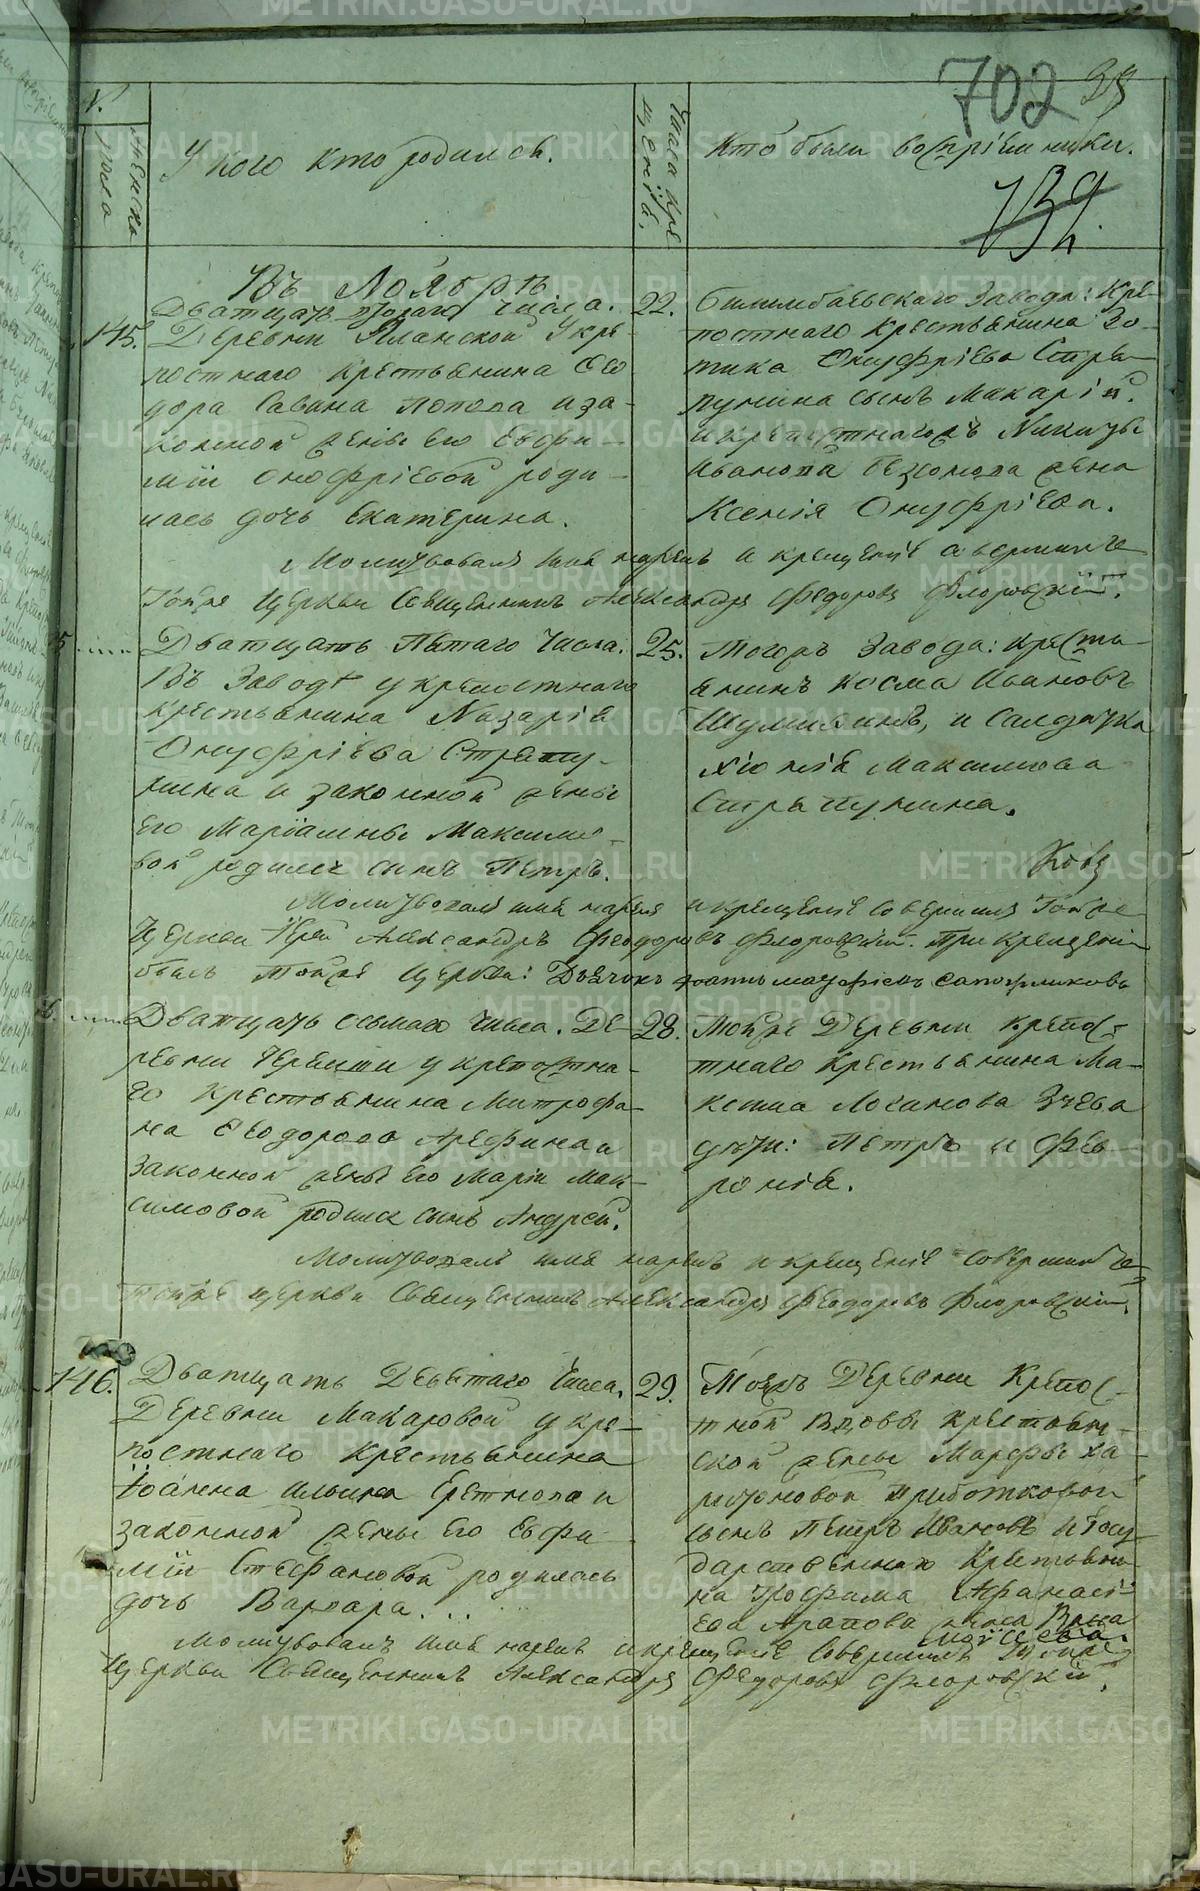 702 39
№.
мужеска
У кого кто родился.
Числа кре
щенія.
Кто были воспріемники.
139.
Въ Ноябрѣ
Дватцать втораго числа. 22.
145. Деревни Пманской У кре-
постнаго крестьянина Ѳео
дора Савина Попова и за-
конной жены его Евфи-
міи Онофріевой роди-
лась дочь Екатерина.
Билимбаевскаго Завода: Кре-
постнаго крестьянина Зо-
тика Онуфріева Стра-
пунина сынъ Макарій.
и крепостнагожъ Никиты
Иванова жена
Ксенія Онуфріева.
Молитвовалъ имя нарекъ и крещеніе совершилъ
Тойже Церкви Священникъ Александръ Федоровъ Флоровскій.
Дватцать Пятаго Числа. 25.
Въ Заводѣ у крепостнаго
крестьянина Назарія
Онуфріева Страпу-
нина и законной жены
его Маріамны Максимо-
вой родился сынъ Петръ.
Тогожъ Завода: Крестья-
янинъ Косма Ивановъ
Шумилинъ, и Салдатка
Хіонія Максимова
Страпунина.
Молитвовалъ имя нарекъ и крещеніе совершилъ Тойже
Церкви Іерей Александръ Феодоровъ Флоровскій. При крещеніи
былъ Тойже Церкви: Дьячокъ Іоаннъ Матфіевъ Сапожниковъ
Дватцать осьмаго Числа. Де- 28.
ревни Черемши у крепостна-
го Крестьянина Митрофа-
на Ѳеодорова Арефина и
законной жены его Маріи Мак-
симовой родился сынъ Андрей.
Тойже Деревни Крепос-
тнаго Крестьянина Ма-
ксима Логинова Зуева
дѣти: Петръ и Фев-
ронія.
Молитвовалъ имя нарекъ и крещеніе совершилъ
тойже церкви Священникъ Александръ Феодоровъ Флоровскій.
146. Дватцать Девятаго Числа. 29.
Деревни Макаровой у кре-
постнаго Крестьянина
Іоанна Ильина Еретнова и
законной жены его Евфи-
міи Стефановой родилась
дочь Варвара...
Тояжъ Деревни Крепос-
тной Вдовы крестьян-
ской жены Марфы Ха-
ритоновой
сынъ Петръ Ивановъ и Госу-
дарственнаго Крестьяни-
на Трофима Афанасі-
ева Арапова жена
Моисеева.
Молитвовалъ имя нарекъ и крещеніе Совершилъ Тойже
Церкви Священникъ Александръ Федоровъ Флоровскій.
METRIKI.GASO-URAL.RU